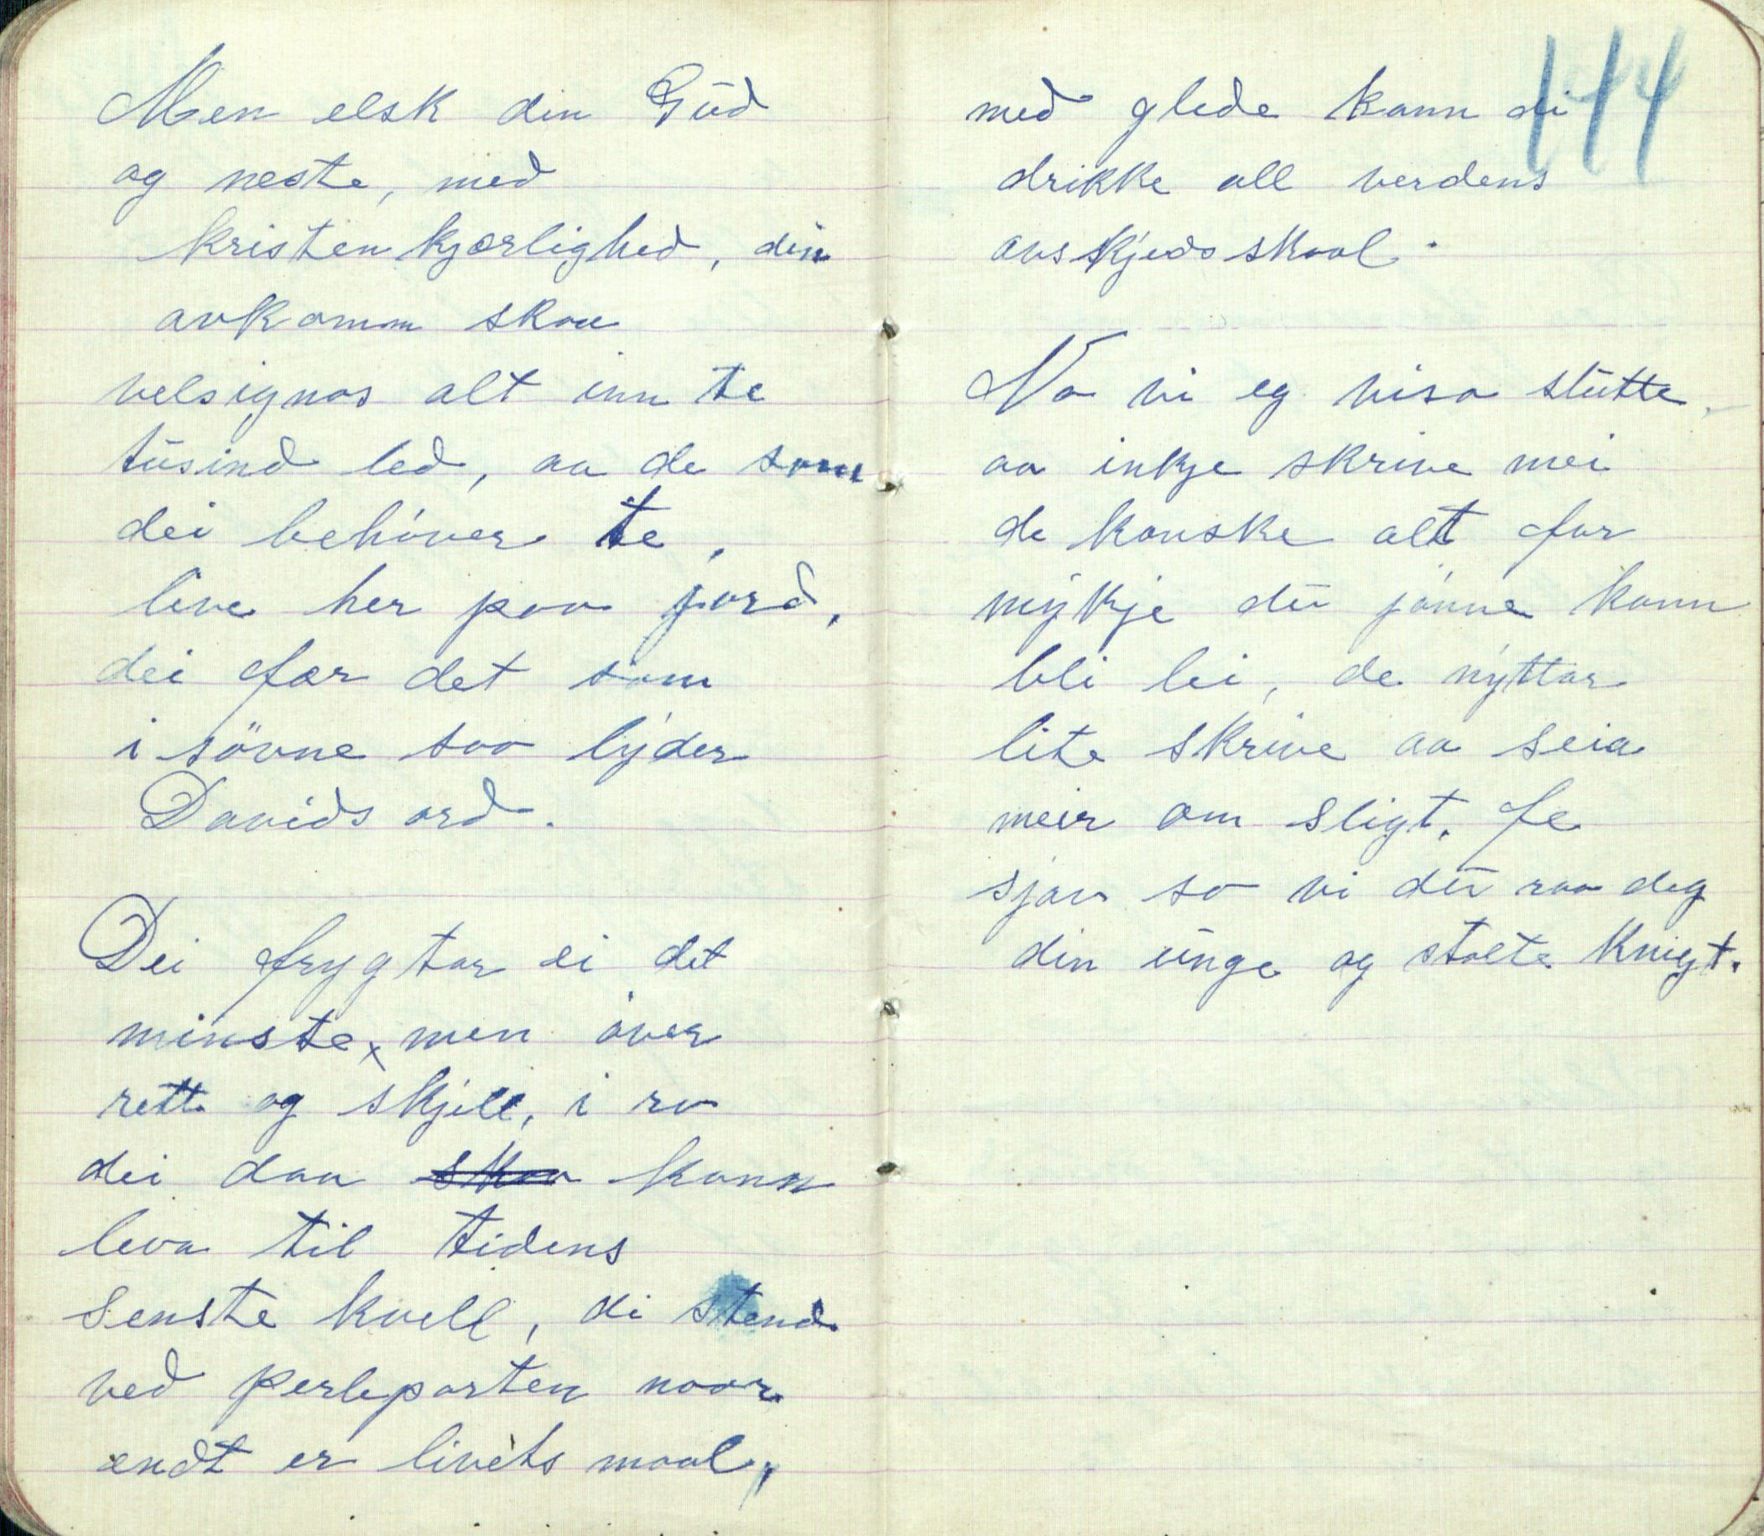 Men elsk din Gud
og neste, med
kristen kjærlighed, din
avkomm skau
velsignas alt inn te
tusind led, aa de som
dei behöver te,
live her paa jord,
dei fær det som
i sövne saa lyder
Davids ord.
Dei frygtar ei det
minste, men över
rett og skjell, i ro
dei daa skaa kann
leva til tidens
senste kvell, di stend
ved perleporten naar
endt er livets maal,
144
med glede kann di
drikke all verdens
avskjeds skaal.
No vi eg visa slutte,
aa inkje skrive mei
de kanske alt for
mykje du jönne kann
bli lei, de nyttar
lite skrive aa seia
meir om sligt,
sjav so vi du raa deg
din unge og stolte Knigt.